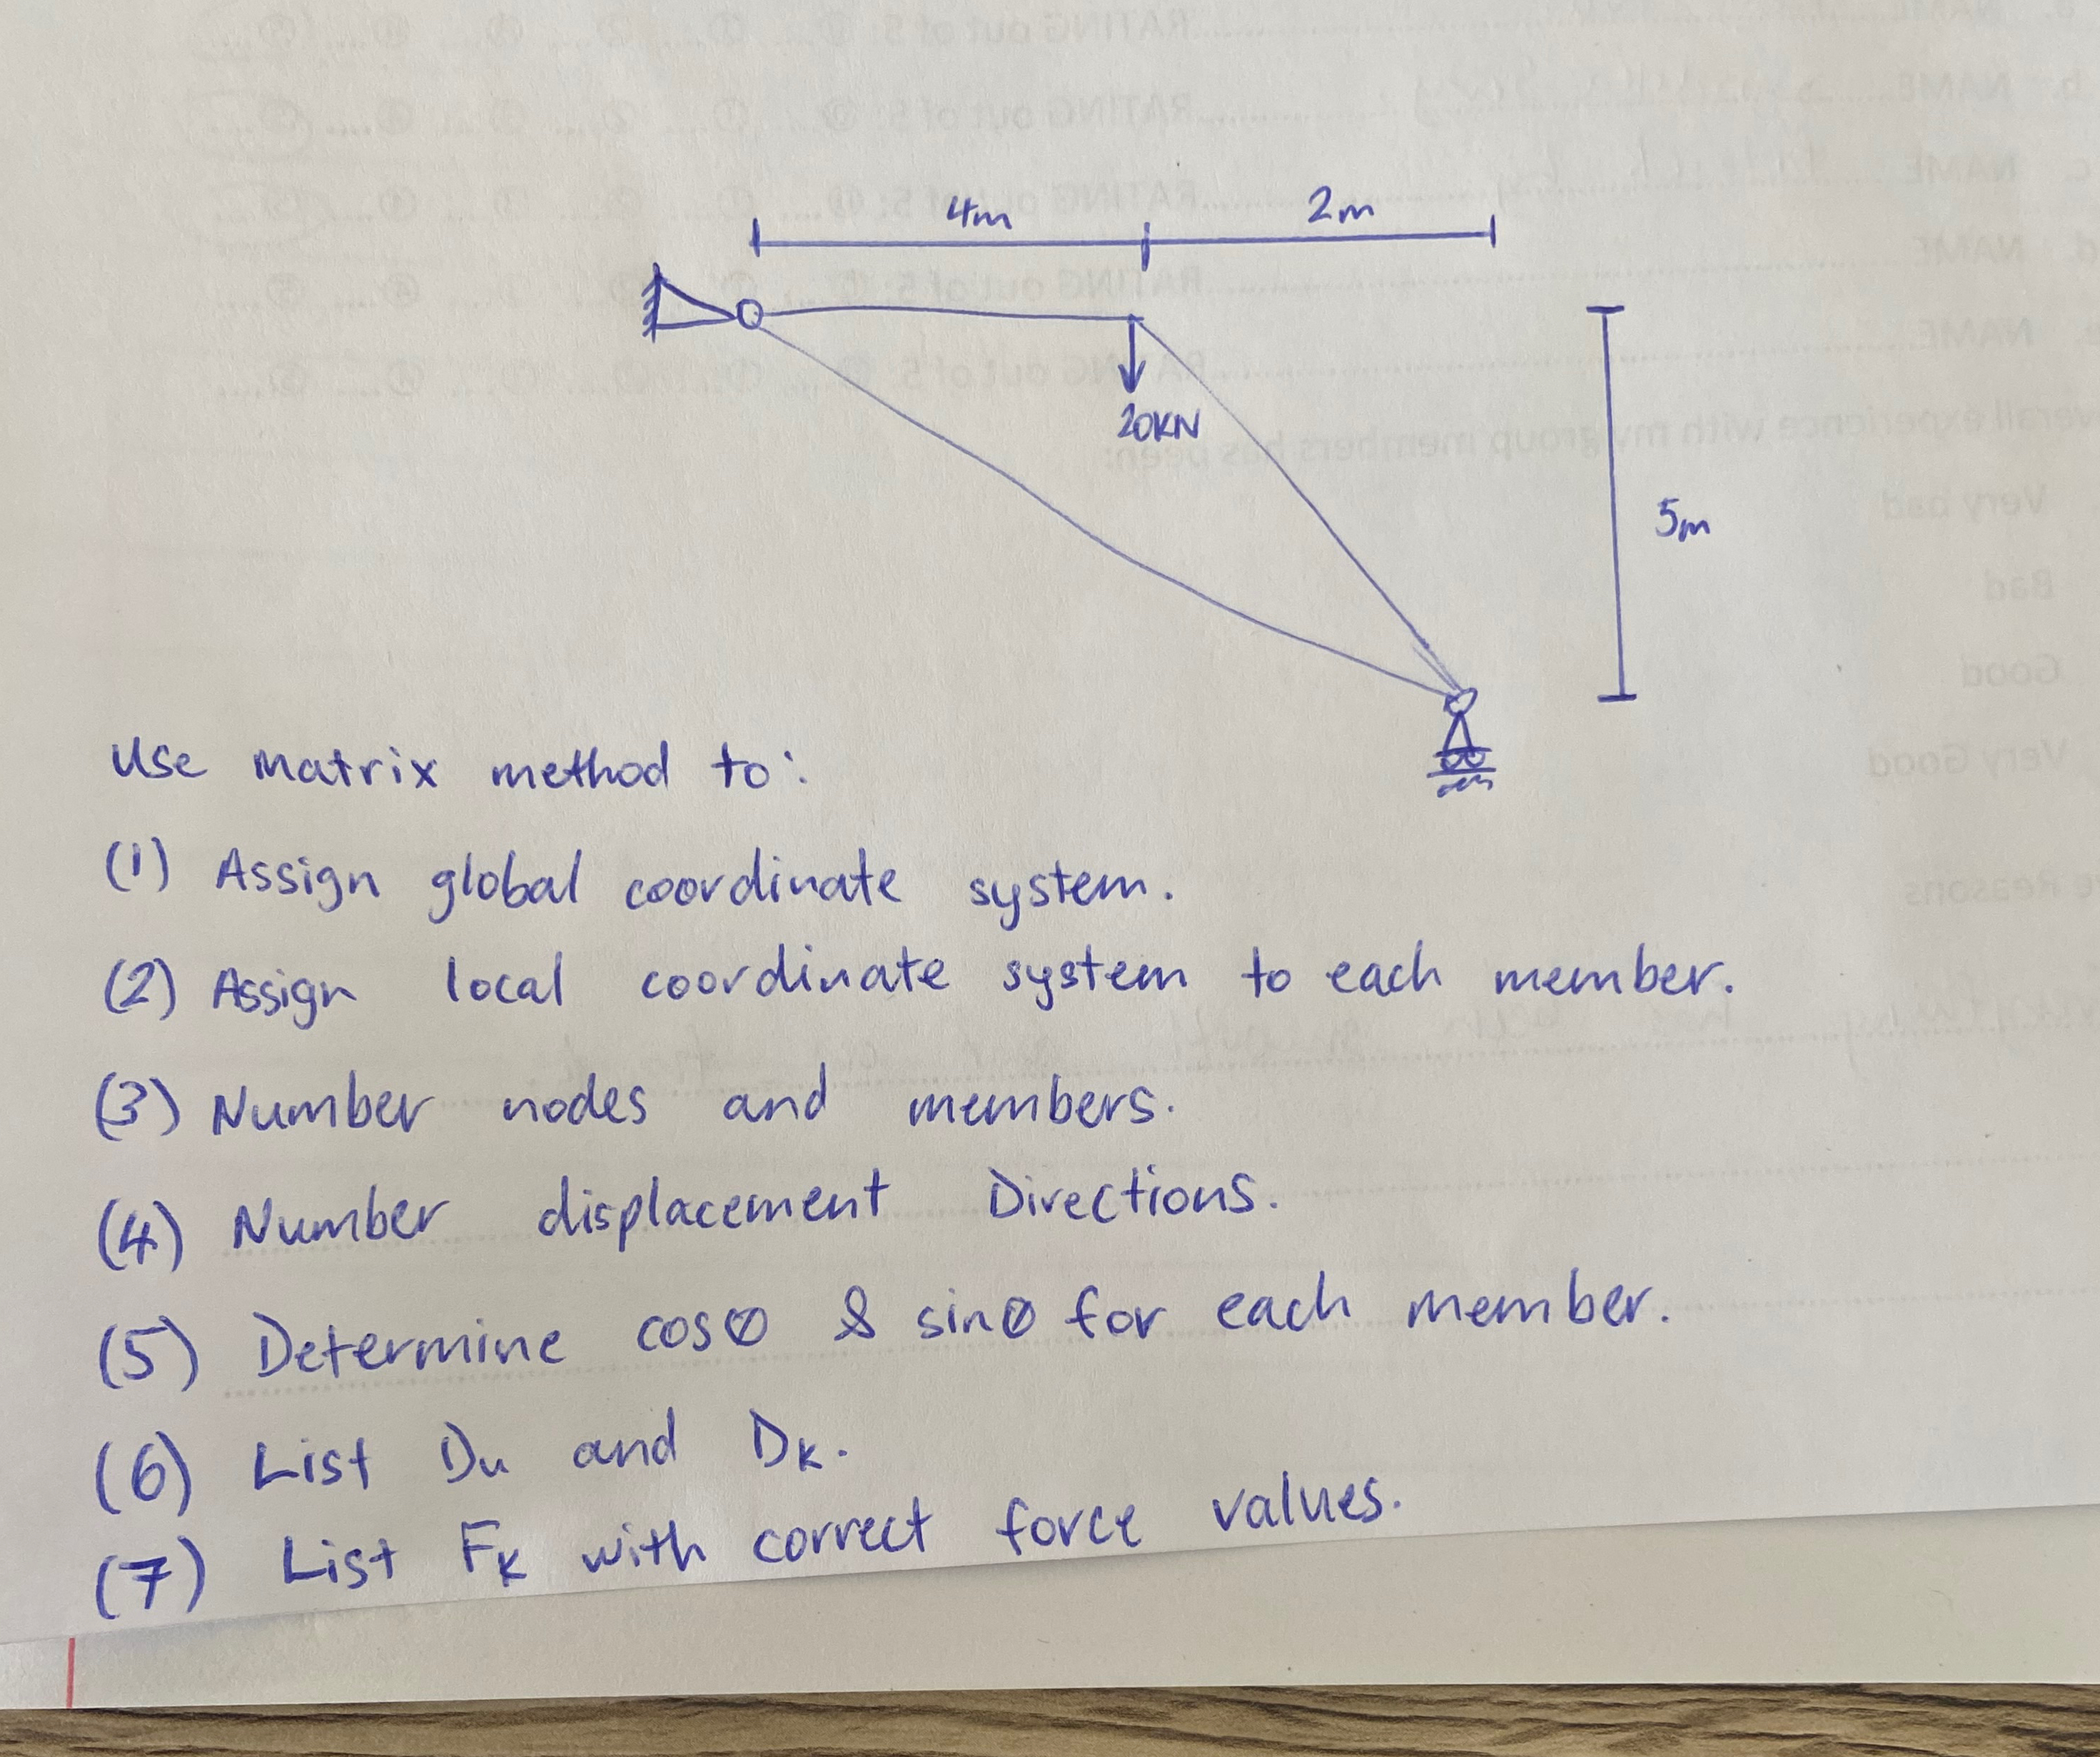 4m 2m
20KN
5m
Use matrix method to:
(1) Assign global coordinate system.
(2) Assign local coordinate system to each member.
(3) Number nodes and members.
(4) Number displacement Directions.
(5) Determine cosθ & sinθ for each member.
(6) List Du and DK.
(7) List FK with correct force values.